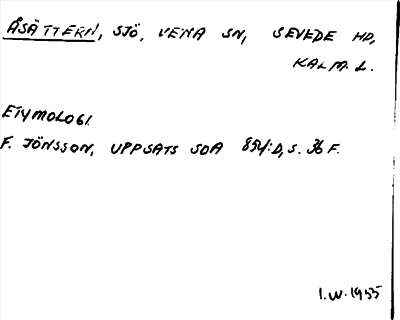 ÅSÄTTERN, SJÖ, VENA SN, SEVEDE HD,
KALM. L.
ETYMOLOGI.
F. JÖNSSON, UPPSATS SDA 854:D, S. 36 F.
I.W. 1955